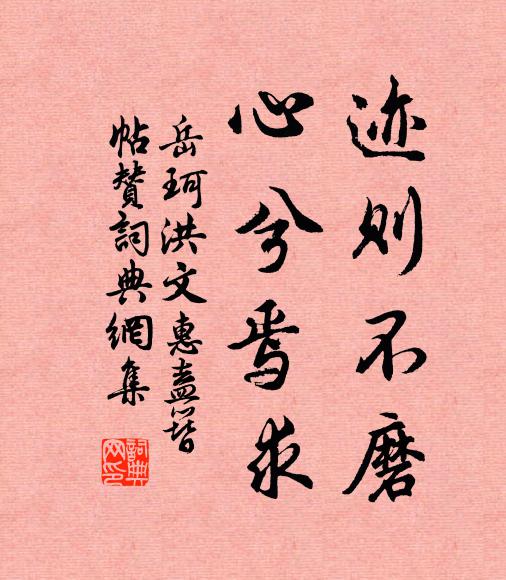 迹则不磨
心兮焉求
岳珂洪文惠盍簪
帖赞词典網集
詞典
网印